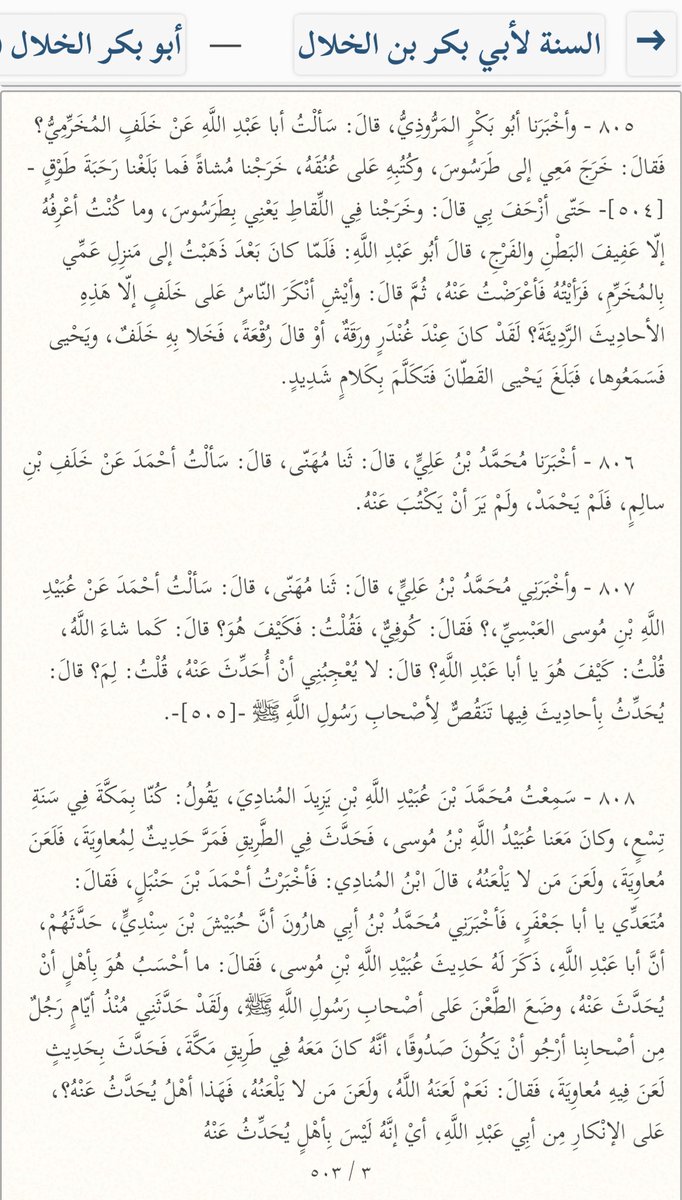 → السنة لأبي بكر بن الخلال — أبو بكر الخلال
٨٠٥ - وأَخْبَرَنا أبُو بَكْرٍ المَرُّوذِيُّ، قالَ: سَألْتُ أبا عَبْدِ اللَّهِ عَنْ خَلَفٍ المُخَرِّمِيُّ؟
فَقالَ: خَرَجَ مَعِي إلى طَرَسُوسَ، وكُتُبِهِ عَلى عُنُقَهُ، خَرَجْنا مُشاةً فَما بَلَغْنا رَحَبَةَ طَوْقٍ -
[٥٠٤]- حَتّى أزْحَفَ بِي قالَ: وخَرَجْنا فِي اللِّقاطِ يَعْنِي بِطَرَسُوسَ، وما كُنْتُ أعْرِفُهُ
إلّا عَفِيفَ البَطْنِ والفَرْجِ، قالَ أبُو عَبْدِ اللَّهِ: فَلَمّا كانَ بَعْدَ ذَهَبْتُ إلى مَنزِلِ عَمِّي
بِالمُخَرِّمِ، فَرَأيْتُهُ فَأعْرَضْتُ عَنْهُ، ثُمَّ قالَ: وأيْشِ أنْكَرَ النّاسُ عَلى خَلَفٍ إلّا هَذِهِ
الأحادِيثَ الرَّدِيئَةَ؟ لَقَدْ كانَ عِنْدَ غُنْدَرٍ ورَقَةٌ، أوْ قالَ رُقْعَةً، فَخَلا بِهِ خَلَفٌ، ويَحْيى
فَسَمَعُوها، فَبَلَغَ يَحْيى القَطّانَ فَتَكَلَّمَ بِكَلامٍ شَدِيدٍ.
٨٠٦ - أخْبَرَنا مُحَمَّدُ بْنُ عَلِيٍّ، قالَ: ثَنا مُهَنّى، قالَ: سَألْتُ أحْمَدَ عَنْ خَلَفِ بْنِ
سالِمٍ، فَلَمْ يَحْمَدْ، ولَمْ يَرَ أنْ يَكْتُبَ عَنْهُ.
٨٠٧ - وأخْبَرَنِي مُحَمَّدُ بْنُ عَلِيٍّ، قالَ: ثَنا مُهَنّى، قالَ: سَألْتُ أحْمَدَ عَنْ عُبَيْدِ
اللَّهِ بْنِ مُوسى العَبْسِيِّ،؟ فَقالَ: كُوفِيٌّ، فَقُلْتُ: فَكَيْفَ هُوَ؟ قالَ: كَما شاءَ اللَّهُ،
قُلْتُ: كَيْفَ هُوَ يا أبا عَبْدِ اللَّهِ؟ قالَ: لا يُعْجِبُنِي أنْ أُحَدِّثَ عَنْهُ، قُلْتُ: لِمَ؟ قالَ:
يُحَدِّثُ بِأحادِيثَ فِيها تَنَقُّصٌ لِأصْحابِ رَسُولِ اللَّهِ ﷺ -[٥٠٥]-.
٨٠٨ - سَمِعْتُ مُحَمَّدَ بْنَ عُبَيْدِ اللَّهِ بْنِ يَزِيدَ المُنادِيَ، يَقُولُ: كُنّا بِمَكَّةَ فِي سَنَةِ
تِسْعٍ، وكانَ مَعَنا عُبَيْدُ اللَّهِ بْنُ مُوسى، فَحَدَّثَ فِي الطَّرِيقِ فَمَرَّ حَدِيثٌ لِمُعاوِيَةَ، فَلَعَنَ
مُعاوِيَةَ، ولَعَنَ مَن لا يَلْعَنُهُ، قالَ ابْنُ المُنادِي: فَأخْبَرْتُ أحْمَدَ بْنَ حَنْبَلٍ، فَقالَ:
مُتَعَدِّي يا أبا جَعْفَرٍ، فَأخْبَرَنِي مُحَمَّدُ بْنُ أبِي هارُونَ أنَّ حُبَيْشَ بْنَ سِنْدِيٍّ، حَدَّثَهُمْ،
أنَّ أبا عَبْدِ اللَّهِ، ذَكَرَ لَهُ حَدِيثَ عُبَيْدِ اللَّهِ بْنِ مُوسى، فَقالَ: ما أحْسَبُ هُوَ بِأهْلٍ أنْ
يُحَدَّثَ عَنْهُ، وضَعَ الطَّعْنَ عَلى أصْحابِ رَسُولِ اللَّهِ ﷺ، ولَقَدْ حَدَّثَنِي مُنْذُ أيّامٍ رَجُلٌ
مِن أصْحابِنا أرْجُو أنْ يَكُونَ صَدُوقًا، أنَّهُ كانَ مَعَهُ فِي طَرِيقِ مَكَّةَ، فَحَدَّثَ بِحَدِيثٍ
لَعَنَ فِيهِ مُعاوِيَةَ، فَقالَ: نَعَمْ لَعَنَهُ اللَّهُ، ولَعَنَ مَن لا يَلْعَنُهُ، فَهَذا أهْلُ يُحَدَّثُ عَنْهُ؟،
عَلى الإنْكارِ مِن أبِي عَبْدِ اللَّهِ، أيْ إنَّهُ لَيْسَ بِأهْلٍ يُحَدِّثُ عَنْهُ
٣ / ٥٠٣